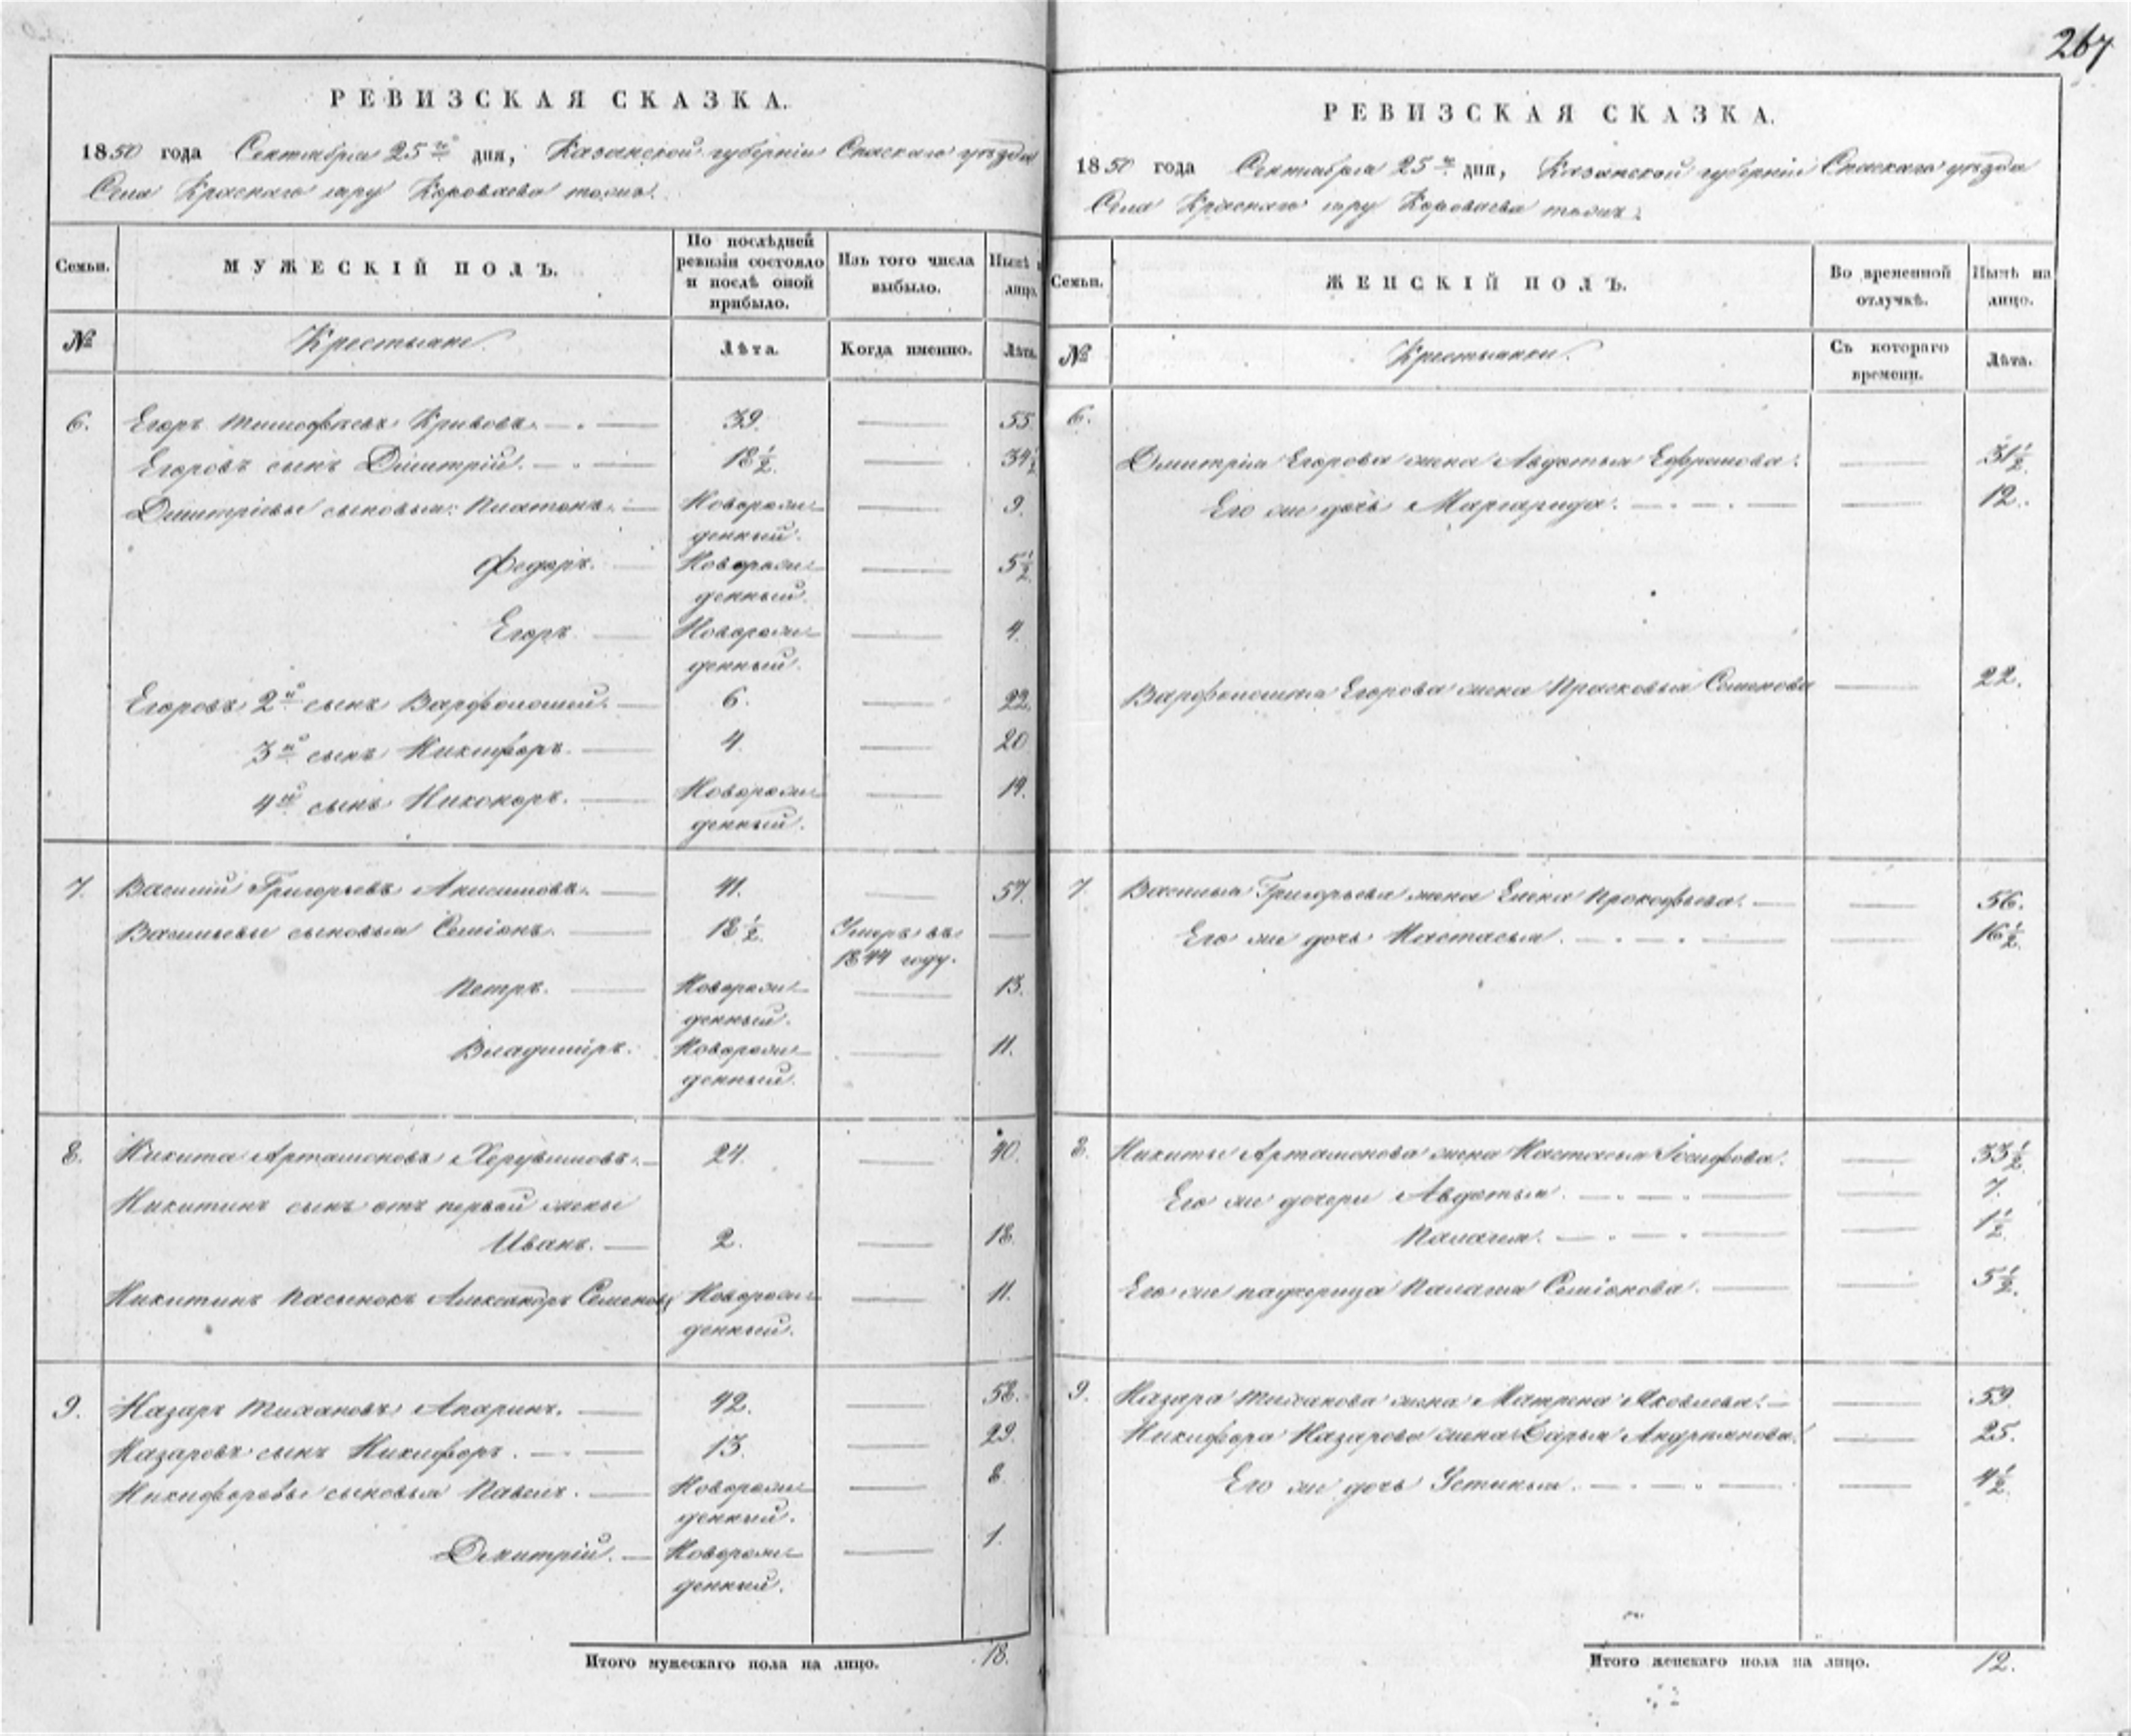 267
РЕВИЗСКАЯ СКАЗКА.
1850 года Сентября 25го дня, Казанской губерніи Спаскаго уѣзда
Села Краснаго яру Короваева тожъ.
Семьи. МУЖЕСКІЙ ПОЛЪ. По послѣдней ревизіи состояло и послѣ оной прибыло. Изъ того числа выбыло. Нынѣ на лицо.
№ Крестьяне. Лѣта. Когда именно. Лѣта.
6. Егоръ Тимофѣевъ Кривовъ. 39. — 55
Егоровъ сынъ Димитрій. 18½. — 34½
Димитріевы сыновья: Платонъ. Новорожденный. — 9.
Федоръ. Новорожденный. — 5½
Егоръ. Новорожденный. — 4.
Егоровъ 2й сынъ Варфоломей. 6. — 22.
3й сынъ Никифоръ. 4. — 20
4й сынъ Никоноръ. Новорожденный. — 14.
7. Василій Григорьевъ Анисимовъ. 41. — 57.
Васильевы сыновья Семіонъ. 18½. Умеръ въ 1844 году. —
Петръ. Новорожденный. — 13.
Владиміръ. Новорожденный. — 11.
8. Никита Артамоновъ Херувимовъ. 24. — 40.
Никитинъ сынъ отъ первой жены
Иванъ. 2. — 18.
Никитинъ пасынокъ Александръ Семеновъ Новорожденный. — 11.
9. Назаръ Апаринъ. 42. — 58.
Назаровъ сынъ Никифоръ. 13. — 29.
Никифоровы сыновья Павелъ. Новорожденный. — 8.
Дмитрій. Новорожденный. — 1.
Итого мужескаго пола на лицо. 18.
РЕВИЗСКАЯ СКАЗКА.
1850 года Сентября 25го дня, Казанской губерніи Спаскаго уѣзда
Села Краснаго яру Короваева тожъ.
Семьи. ЖЕНСКІЙ ПОЛЪ. Во временной отлучкѣ. Нынѣ на лицо.
№ Крестьянки. Съ котораго времени. Лѣта.
6.
Дмитрія Егорова жена Авдотья Ефремова. — 31½
Его же дочь Маргарида. — 12.
Варфоломея Егорова жена Прасковья Семенова — 22.
7. Василья Григорьева жена Елена Прокофьева. — 56.
Его же дочь Настасья. — 16½
8. Никиты Артамонова жена Настасья Іосифова. — 33½
Его же дочери Авдотья. — 7.
Палагея. — 1½
Его же падчерица Палагея Семіонова. — 5½.
9. Назара жена Матрена Яковлева. — 59.
Никифора Назарова жена Дарья Андріянова. — 25.
Его же дочь Устинья. — 4½
Итого женскаго пола на лицо. 12.